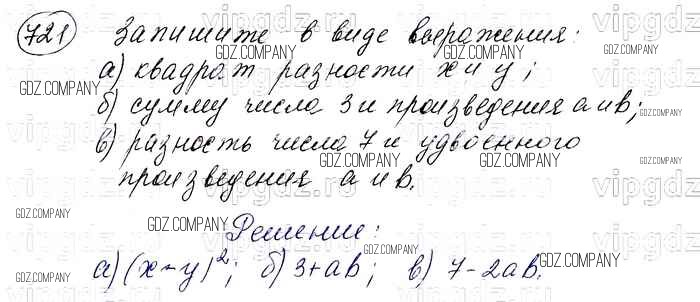 721 Запишите в виде выражения:
а) квадрат разности x и y;
б) сумму числа 3 и произведения a и b;
в) разность числа 7 и удвоенного
произведения a и b.
Решение:
а) (x-y)²; б) 3+ab; в) 7-2ab.